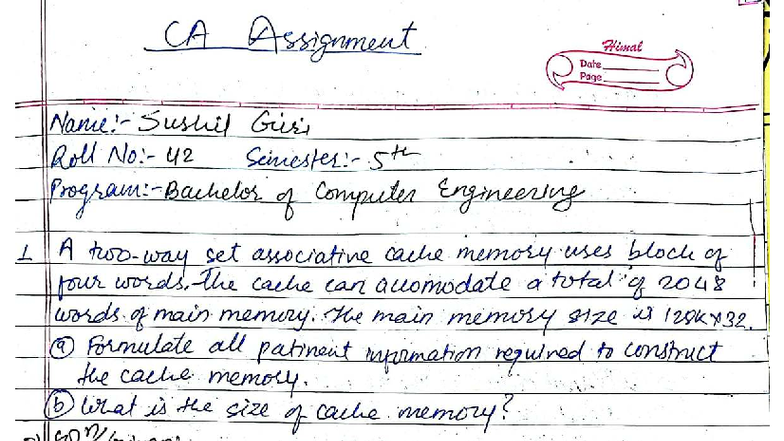 CA Assignment
Himal
Date
Page
Name:- Sushil Giri
Roll No:- 42 Semester:- 5th
Program:- Bachelor of Computer Engineering
1 A two-way set associative cache memory uses block of
four words. The cache can accomodate a total of 2048
words of main memory. The main memory size is 128K×32.
(a) Formulate all patinent information required to construct
the cache memory.
(b) What is the size of cache memory?